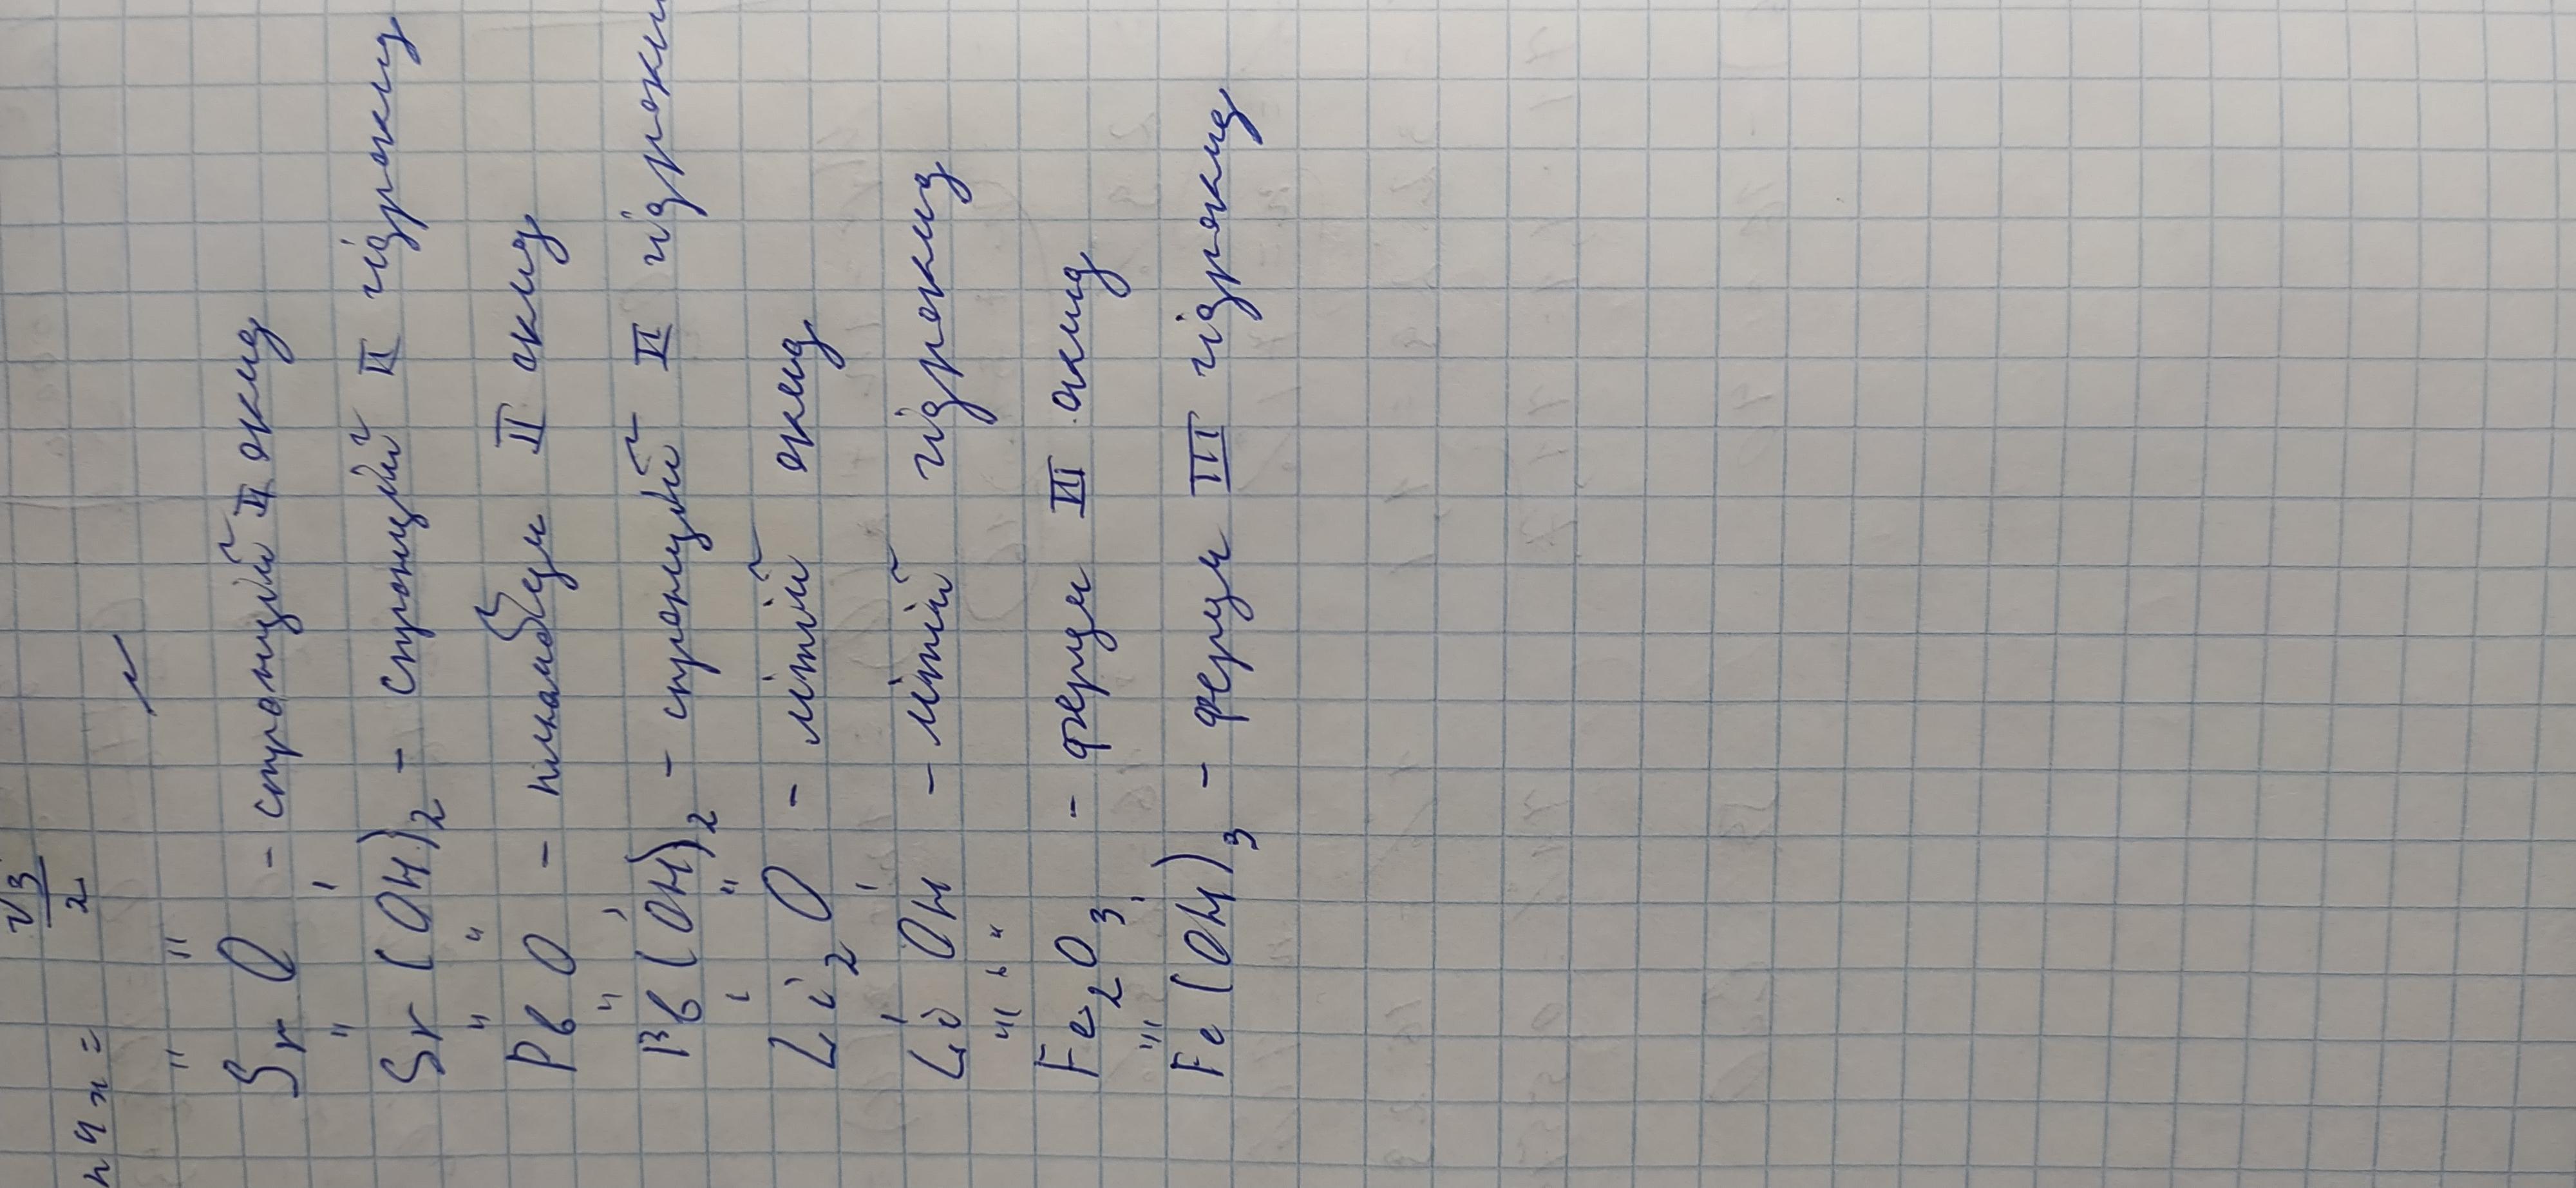 n 4x = √3/2
" "
Sr O - стронцій II оксид
" '
Sr (OH)2 - стронцій II гідроксид
" "
Pb O - плюмбум II оксид
" '
Pb (OH)2 - стронцій II гідрокси
' "
Li2 O - літій оксид
' '
Li OH - літій гідроксид
''' " "
Fe2O3 - ферум III оксид
''' '
Fe (OH)3 - ферум III гідроксид